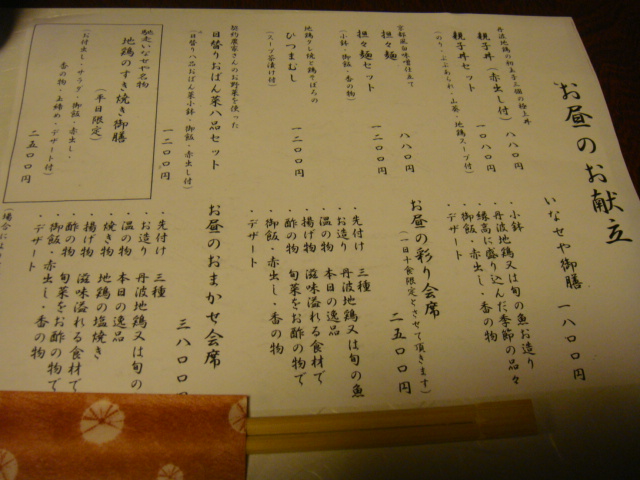 お昼のお献立
丹波地鶏の初玉子三個の極上丼
親子丼（赤出し付）　八八〇円
親子丼セット　一〇八〇円
（のり・ぶぶあられ・山菜・地鶏スープ付）
京都風白味噌仕立て
担々麺　八八〇円
担々麺セット　一二八〇円
（小鉢・御飯・香の物）
地鶏タレ焼と鶏そぼろの
ひつまむし　一一〇〇円
（スープ茶漬け付）
契約農家さんのお野菜を使った
日替りおばん菜八品セット　一二〇〇円
（日替り八品おばん菜小鉢・御飯・赤出し付）
馳走いなせや名物
地鶏のすき焼き御膳
（平日限定）
二五〇〇円
（お付出し・サラダ・御飯・赤出し・
香の物・土締め・デザート付）
いなせや御膳　一八〇〇円
・小鉢
・丹波地鶏又は旬の魚お造り
・縁高に盛り込んだ季節の品々
・御飯・赤出し・香の物
・デザート
お昼の彩り会席　二五〇〇円
（一日十食限定とさせて頂きます）
・先付け　三種
・お造り　丹波地鶏又は旬の魚
・温の物　本日の逸品
・揚げ物　滋味溢れる食材で
・酢の物　旬菜をお酢の物で
・御飯・赤出し・香の物
・デザート
お昼のおまかせ会席　三八〇〇円
・先付け　三種
・お造り　丹波地鶏又は旬の
・温の物　本日の逸品
・焼き物　地鶏の塩焼き
・揚げ物　滋味溢れる食材で
・酢の物　旬菜をお酢の物で
・御飯・赤出し・香の物
・デザート
（場合によ